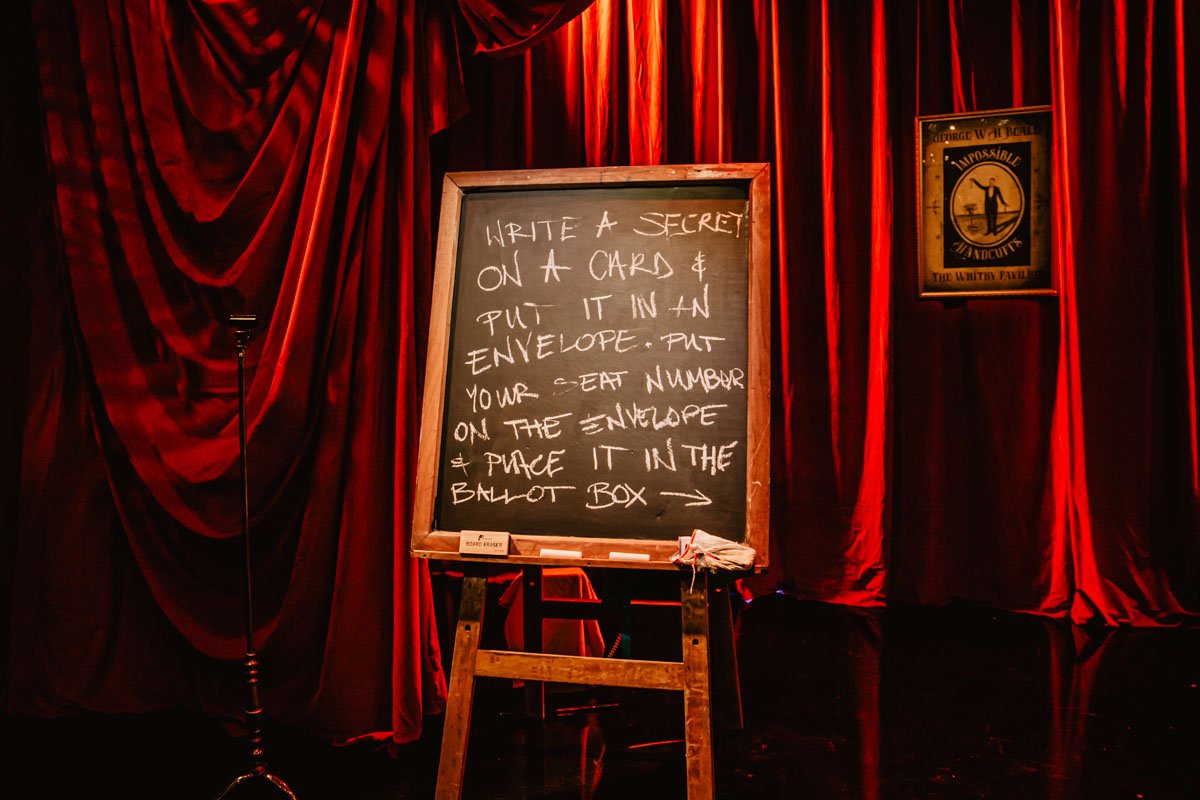 WRITE A SECRET
ON A CARD &
PUT IT IN AN
ENVELOPE. PUT
YOUR SEAT NUMBER
ON THE ENVELOPE
& PLACE IT IN THE
BALLOT BOX →
BOARD ERASER
GEORGE W H BEALE
IMPOSSIBLE
HANDCUFFS
THE WHITBY PAVILION